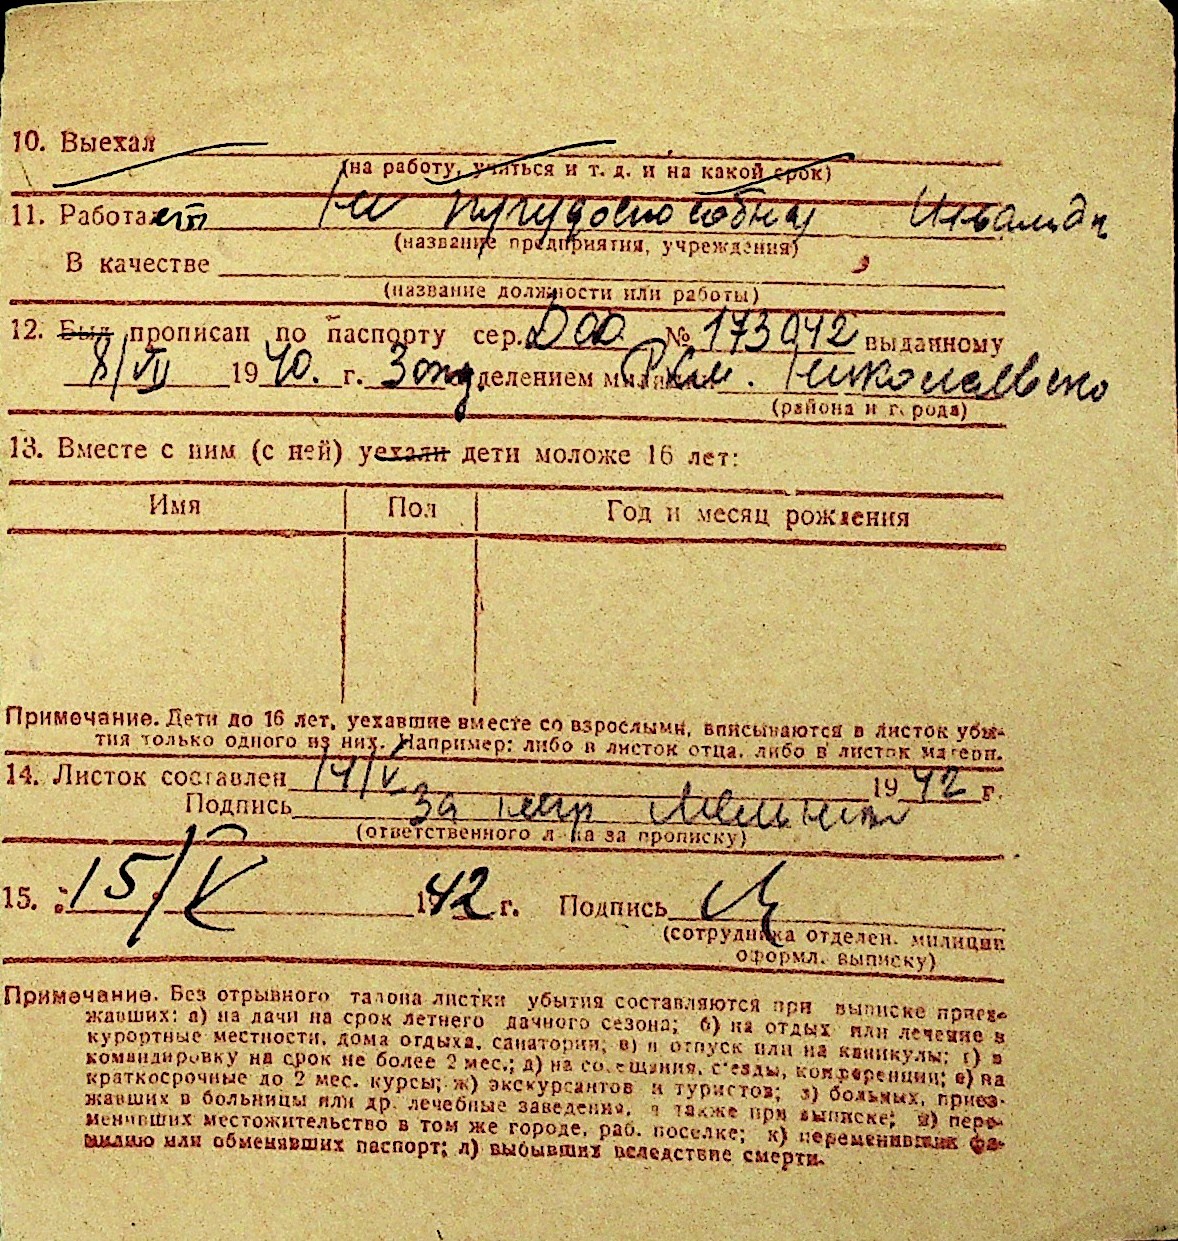 10. Выехал
(на работу, учиться и т. д. и на какой срок)
11. Работает Не трудоспособна Инвалид
(название предприятия, учреждения)
В качестве
(название должности или работы)
12. Был прописан по паспорту сер. № 173042 выданному
8/VII 1940. г. 3 отделением милиции Р.К.М. Николаевско
(района и города)
13. Вместе с ним (с ней) уехали дети моложе 16 лет:
Имя Пол Год и месяц рождения
Примечание. Дети до 16 лет, уехавшие вместе со взрослыми, вписываются в листок убы-
тия только одного из них. Например: либо в листок отца, либо в листок матери.
14. Листок составлен 14/V 1942 г.
Подпись За
(ответственного л-ца за прописку)
15. 15/V 1942 г. Подпись
(сотрудника отделен. милиции
оформл. выписку)
Примечание. Без отрывного талона листки убытия составляются при выписке приез-
жавших: а) на дачи на срок летнего дачного сезона; б) на отдых или лечение в
курортные местности, дома отдыха, санатории; в) в отпуск или на каникулы; г) в
командировку на срок не более 2 мес.; д) на совещания, с'езды, конференции; е) на
краткосрочные до 2 мес. курсы; ж) экскурсантов и туристов; з) больных, приез-
жавших в больницы или др. лечебные заведения, а также при выписке; и) пере-
менивших местожительство в том же городе, раб. поселке; к) переменивших фа-
милию или обменявших паспорт; л) выбывших вследствие смерти.